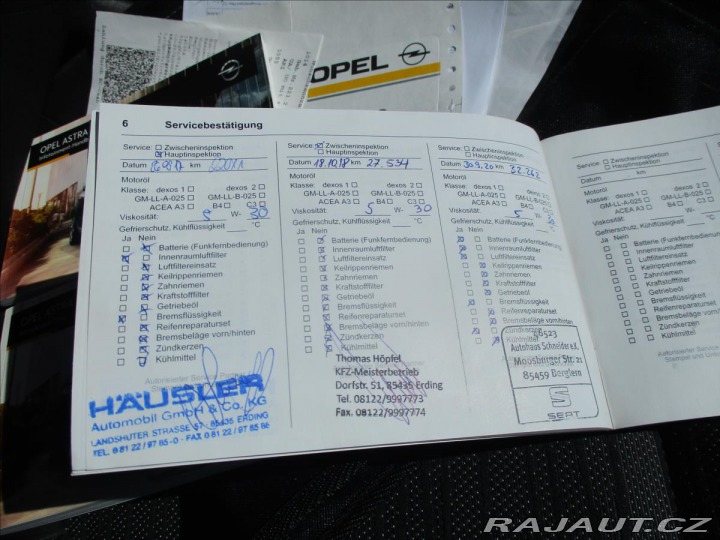 OPEL
OPEL ASTRA
6 Servicebestätigung
Service: Zwischeninspektion
Hauptinspektion
Datum km
Motoröl
Klasse: dexos 1 dexos 2
GM-LL-A-025 GM-LL-B-025
ACEA A3 B4 C3
Viskosität: 5 W- 30
Gefrierschutz, Kühlflüssigkeit °C
Ja Nein
Batterie (Funkfernbedienung)
Innenraumluftfilter
Luftfiltereinsatz
Keilrippenriemen
Zahnriemen
Kraftstofffilter
Getriebeöl
Bremsflüssigkeit
Reifenreparaturset
Bremsbeläge vorn/hinten
Zündkerzen
Kühlmittel
HÄUSLER
Automobil GmbH & Co. KG
LANDSHUTER STRASSE 57 · 85435 ERDING
TEL. 0 81 22 / 97 85-0 · FAX 0 81 22 / 97 85 86
Service: Zwischeninspektion
Hauptinspektion
Datum 18.10.18 km 27.534
Motoröl
Klasse: dexos 1 dexos 2
GM-LL-A-025 GM-LL-B-025
ACEA A3 B4 C3
Viskosität: 5 W- 30
Gefrierschutz, Kühlflüssigkeit °C
Ja Nein
Batterie (Funkfernbedienung)
Innenraumluftfilter
Luftfiltereinsatz
Keilrippenriemen
Zahnriemen
Kraftstofffilter
Getriebeöl
Bremsflüssigkeit
Reifenreparaturset
Bremsbeläge vorn/hinten
Zündkerzen
Kühlmittel
Thomas Höpfel
KFZ-Meisterbetrieb
Dorfstr. 51, 85435 Erding
Tel. 08122/9997773
Fax. 08122/9997774
Service: Zwischeninspektion
Hauptinspektion
Datum 30.9.20 km 32.262
Motoröl
Klasse: dexos 1 dexos 2
GM-LL-A-025 GM-LL-B-025
ACEA A3 B4 C3
Viskosität: 5 W- 30
Gefrierschutz, Kühlflüssigkeit °C
Ja Nein
Batterie (Funkfernbedienung)
Innenraumluftfilter
Luftfiltereinsatz
Keilrippenriemen
Zahnriemen
Kraftstofffilter
Getriebeöl
Bremsflüssigkeit
Reifenreparaturset
Bremsbeläge vorn/hinten
Zündkerzen
Kühlmittel
86523
Autohaus Schneider e.K.
Moosburger Str. 21
85459 Berglern
SEAT
Service: Zwischeninspektion
Hauptinspektion
Datum km
Motoröl
Klasse: dexos 1
GM-LL-A-025
ACEA A3
Viskosität:
Gefrierschutz, Kühlflüssigkeit
Ja Nein
Batterie (Funkfernbedienung)
Innenraumluftfilter
Luftfiltereinsatz
Keilrippenriemen
Zahnriemen
Kraftstofffilter
Getriebeöl
Bremsflüssigkeit
Reifenreparaturset
Bremsbeläge
Zündkerzen
Kühlmittel
RAJAUT.CZ